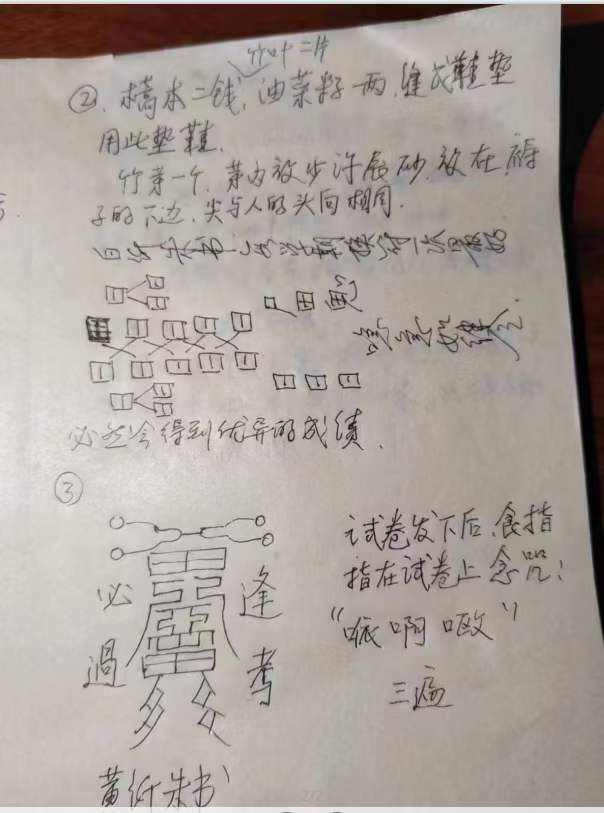 竹叶二片
② 槁本二钱、油菜籽一两、缝成鞋垫
用此垫鞋.
竹茅一个、茅内放少许辰砂,放在褥
子的下边、尖与人的头向相同.
必然会得到优异的成绩.
③
试卷发下后、食指
指在试卷上念咒:
“哌啊呕”
三遍
必 逢
過 考
黄纸朱书